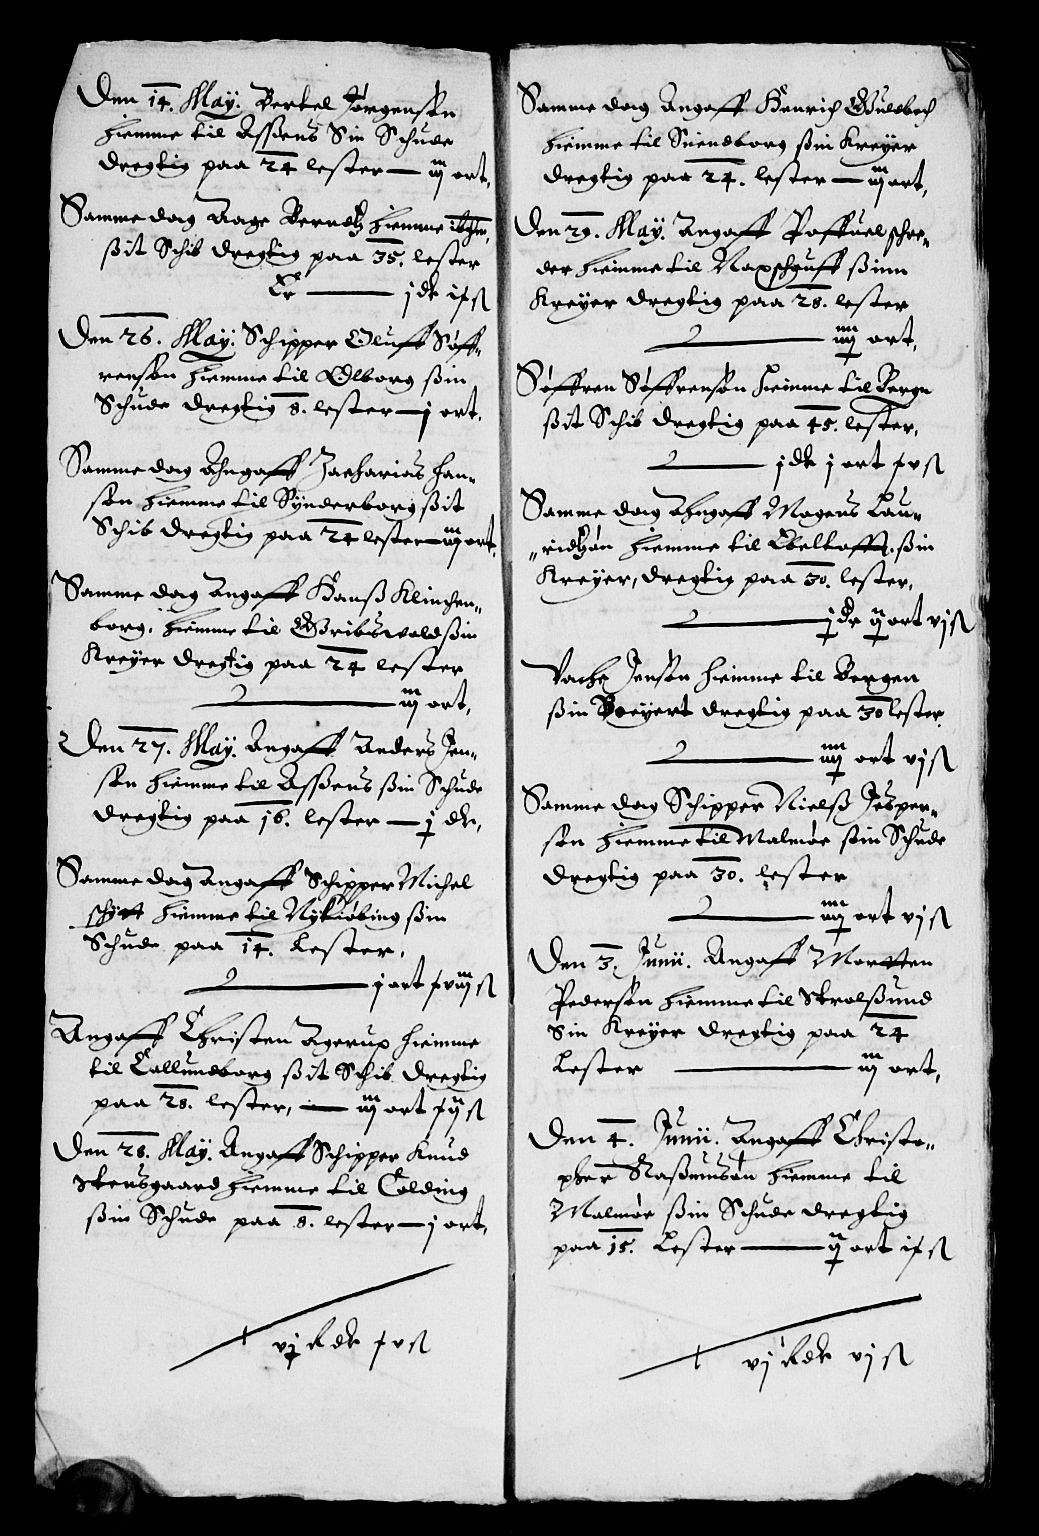 Den 14. May. Bertel Jørgensøn
hiemme til Assens Sin Schude
dregtig paa 24 lester — iij ort.
Samme dag Aage Berndtz hiemme ibid:
ßit Schib dregtig paa 35. lester
Er — j dr if ß
Den 26. May. Schipper Oluff Søff-
rensøn hiemme til Olborg ßin
Schude dregtig 8. lester — j ort.
Samme dag Angaff Zacharias Han-
søn hiemme til Synderborg ßit
Schib dregtig paa 24 lester — iij ort.
Samme dag Angaff Hanß Klinchen-
borg. hiemme til Gribswold ßin
Kreyer dregtig paa 24 lester
— iij ort.
Den 27. May. Angaff Anders Jen-
søn hiemme til Assens ßin Schude
dregtig paa 16. lester — j dr.
Samme dag Angaff Schipper Michel
Schytt hiemme til Nykiøbing ßin
Schude paa 14. Lester.
— j ort fviij ß
Angaff Christen Agerup hiemme
til Callundborg ßit Schib dregtig
paa 28. lester, — iij ort fij ß
Den 28. May. Angaff Schipper Knud
Stensgaard hiemme til Colding
ßin Schude paa 8. lester — j ort.
vj Rdr fv ß
Samme dag Angaff Henrich Guldbech
hiemme til Suendborg ßin Kreyer
dregtig paa 24. lester — iij ort.
Den 29. May. Angaff Paffuel Schrø-
der hiemme til Naxschouff ßinn
Kreyer dregtig paa 28. lester
— iiij ort.
Søffren Søffrensøn hiemme til Berge
ßit Schib dregtig paa 45. lester.
— j dr j ort fv ß
Samme dag Angaff Mogens Lau-
ridtzøn hiemme til Ebeltofft. ßin
Kreyer, dregtig paa 30. lester.
— j dr ij ort vj ß
Jensøn hiemme til Bergen
ßin Boyert dregtig paa 30 lester
— iiij ort vj ß
Samme dag Schipper Nielß Jesper-
søn hiemme til Malmøe ßin Schude
dregtig paa 30. lester
— iiij ort vj ß
Den 3. Junii. Angaff Mortten
Pedersøn hiemme til Strolßund
Sin Kreyer dregtig paa 24
Lester — iij ort.
Den 4. Junii. Angaff Christo-
pher Raßmusøn hiemme til
Malmøe ßin Schude dregtig
paa 15. Lester — ij ort if ß
vj Rdr vj ß